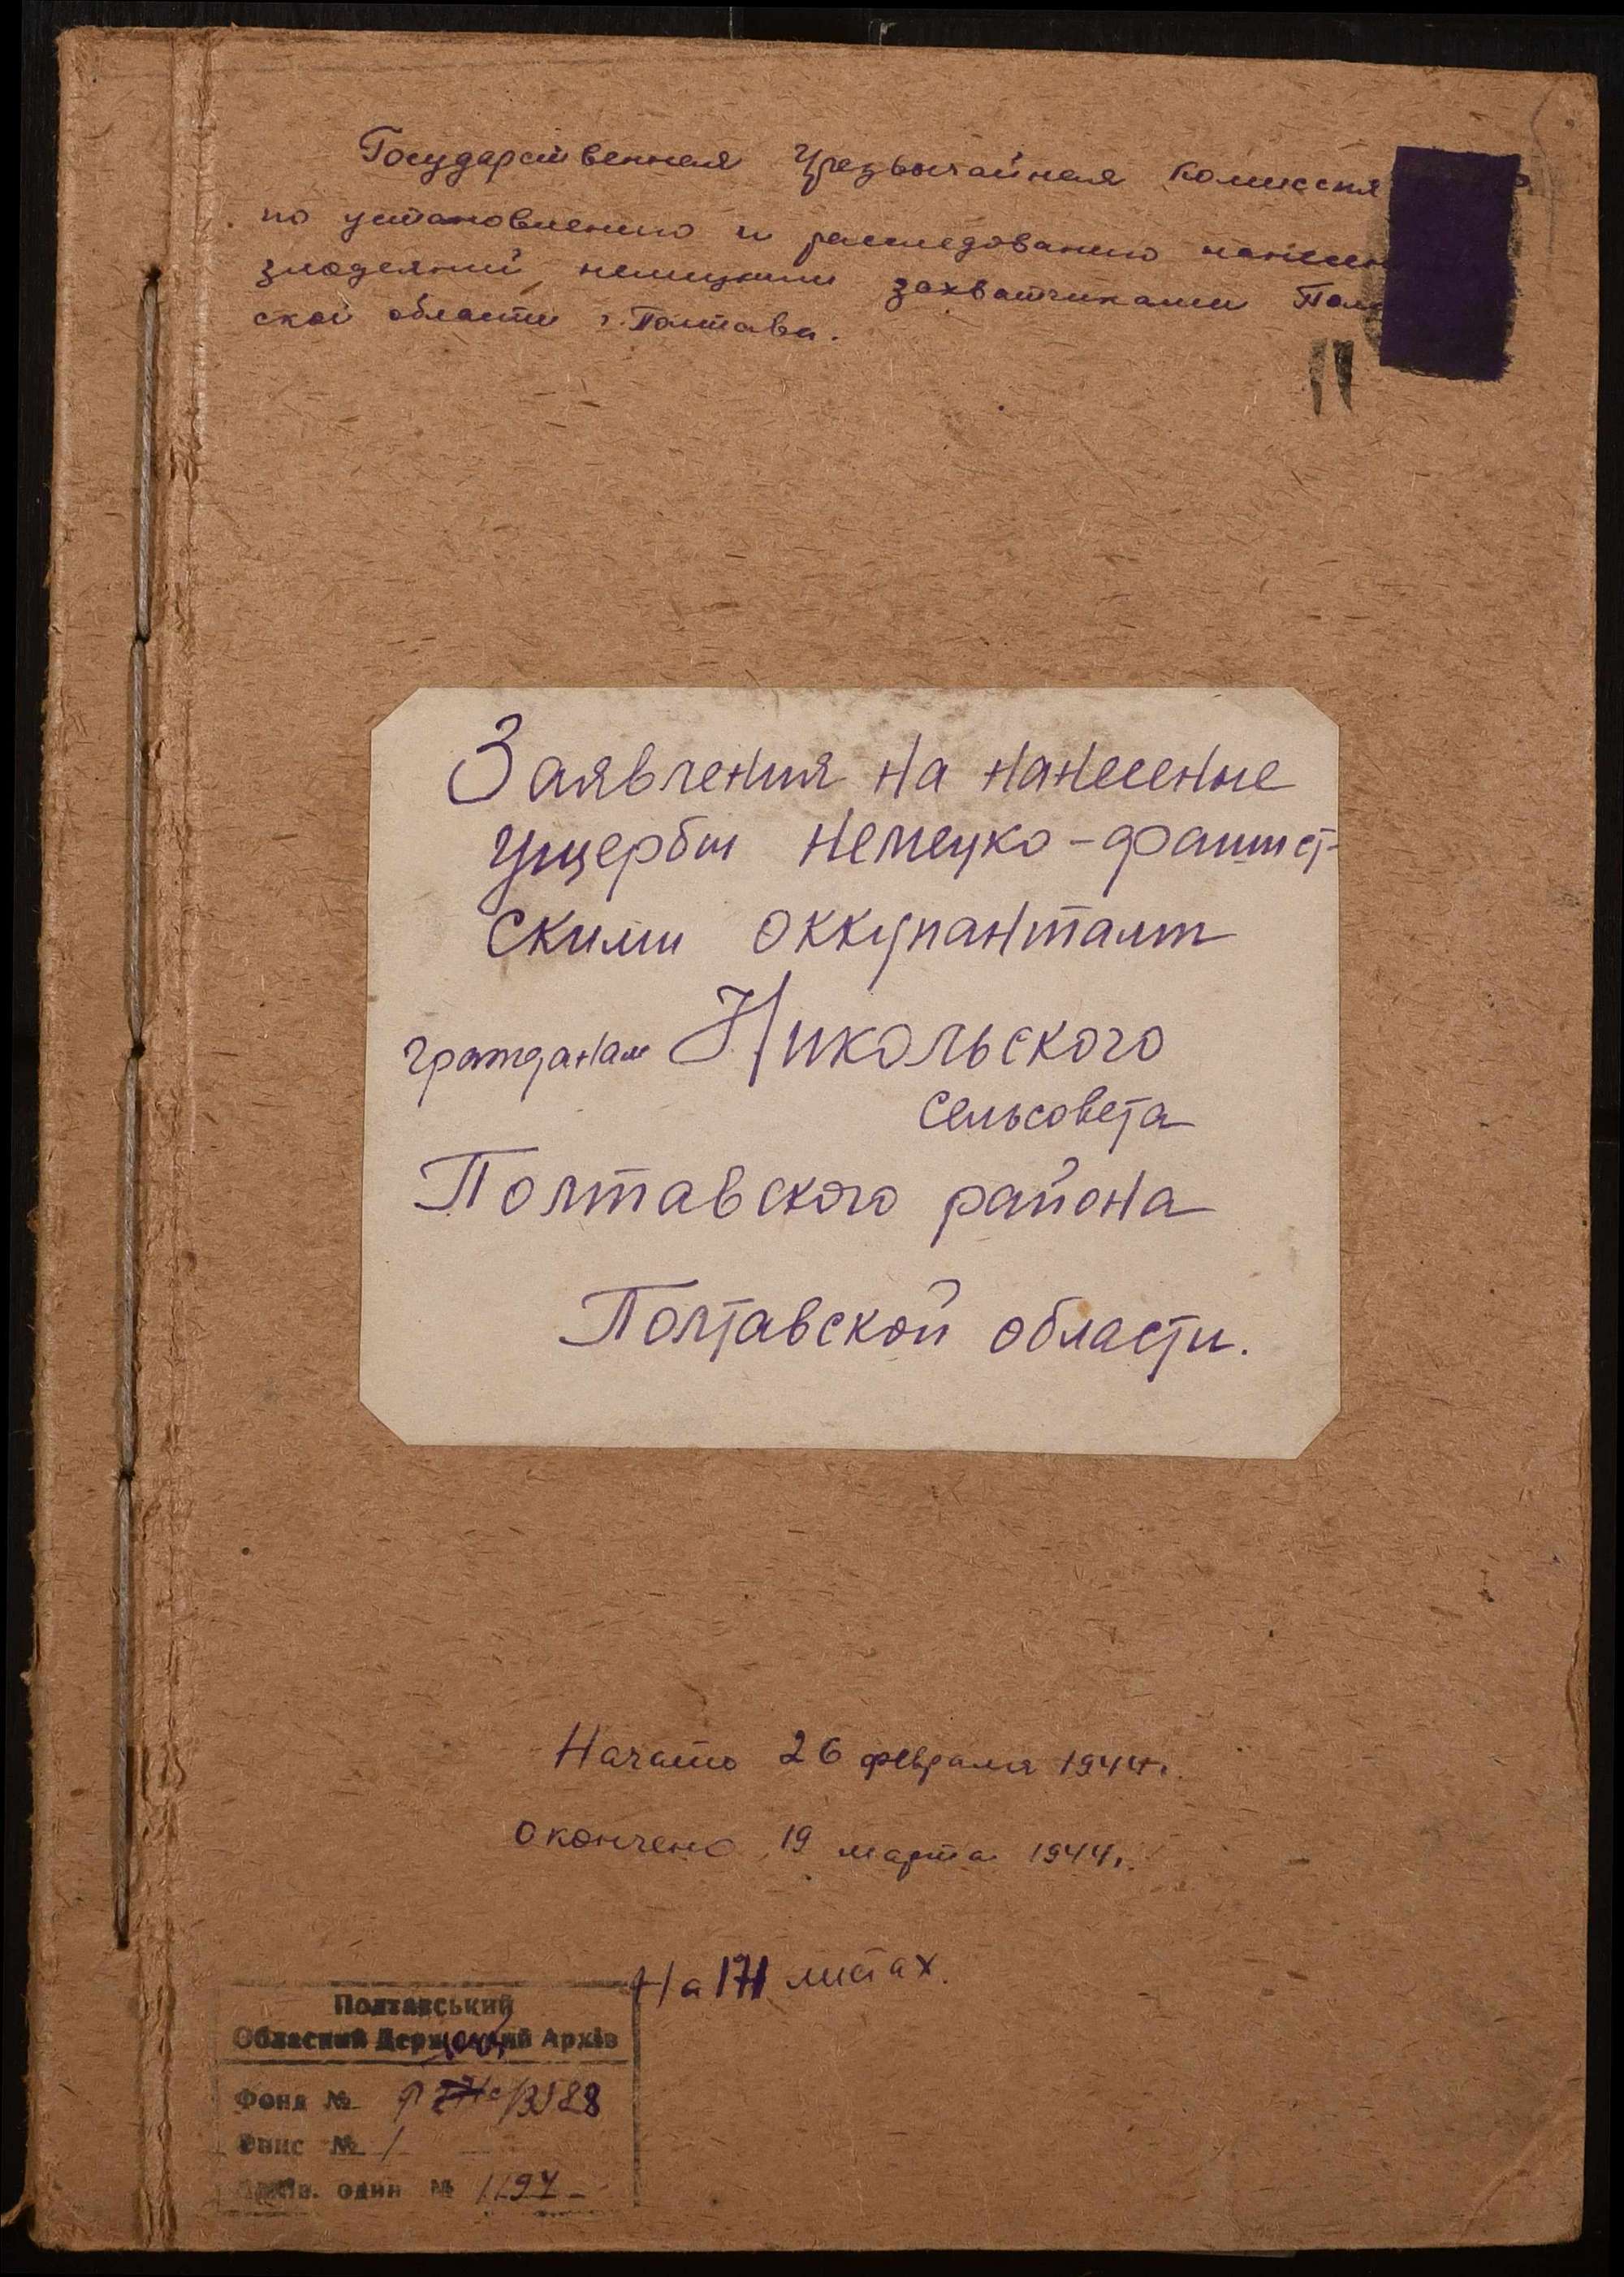 Государственная Чрезвычайная Комиссия
по установлению и расследованию нанесен
злодеяний немецкими захватчиками Пол
ской области г. Полтава.
Заявления на нанесеные
ущербы немецко-фашист-
скими оккупантами
гражданам Никольского
сельсовета
Полтавского района
Полтавской области.
Начато 26 февраля 1944г.
Окончено 19 марта 1944г.
На 171 листах.
Полтавський
Обласний Державний Архів
Фонд № Р /3388
Опис № 1
один № 1194